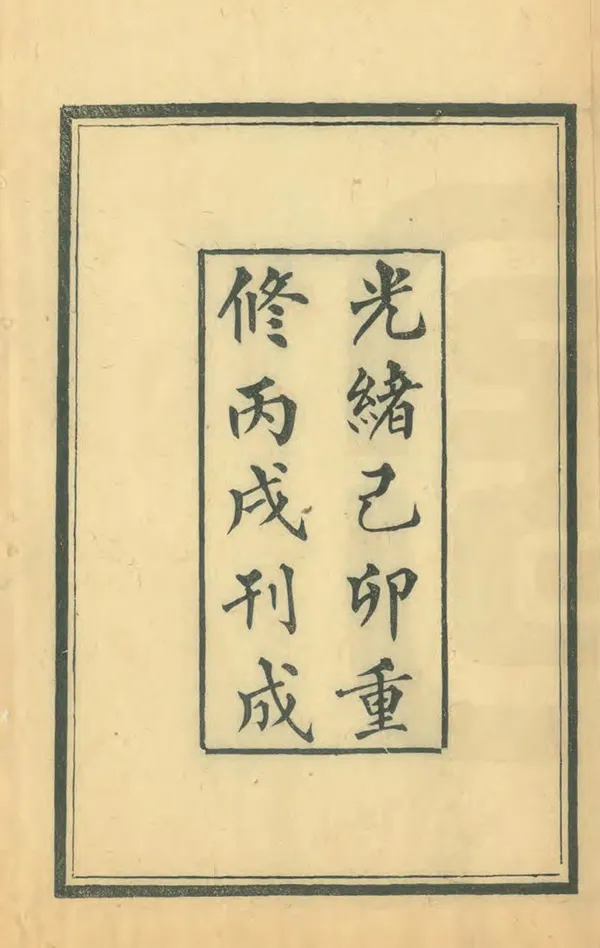 光緒己卯重
修丙戌刊成